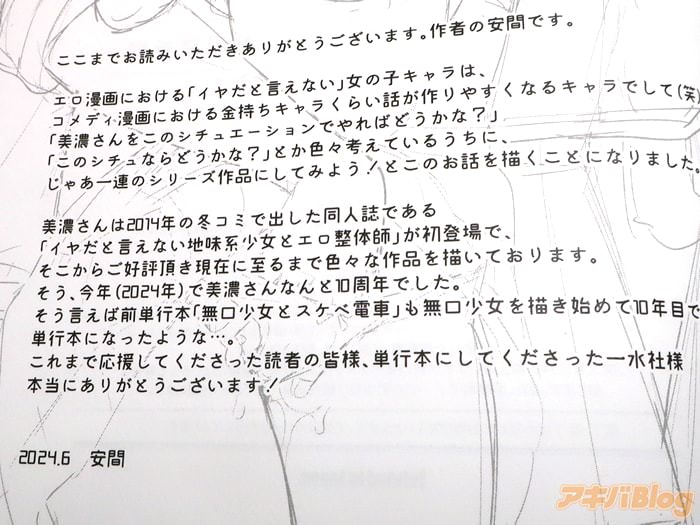 ここまでお読みいただきありがとうございます。作者の安間です。
エロ漫画における「イヤだと言えない」女の子キャラは、
コメディ漫画における金持ちキャラくらい話が作りやすくなるキャラでして(笑)
「美濃さんをこのシチュエーションでやればどうかな？」
「このシチュならどうかな？」とか色々考えているうちに、
じゃあ一連のシリーズ作品にしてみよう！とこのお話を描くことになりました。
美濃さんは2014年の冬コミで出した同人誌である
「イヤだと言えない地味系少女とエロ整体師」が初登場で、
そこからご好評頂き現在に至るまで色々な作品を描いております。
そう、今年(2024年)で美濃さんなんと10周年でした。
そう言えば前単行本「無口少女とスケベ電車」も無口少女を描き始めて10年目で
単行本になったような…。
これまで応援してくださった読者の皆様、単行本にしてくださった一水社様
本当にありがとうございます！
2024.6 安間
アキバBlog